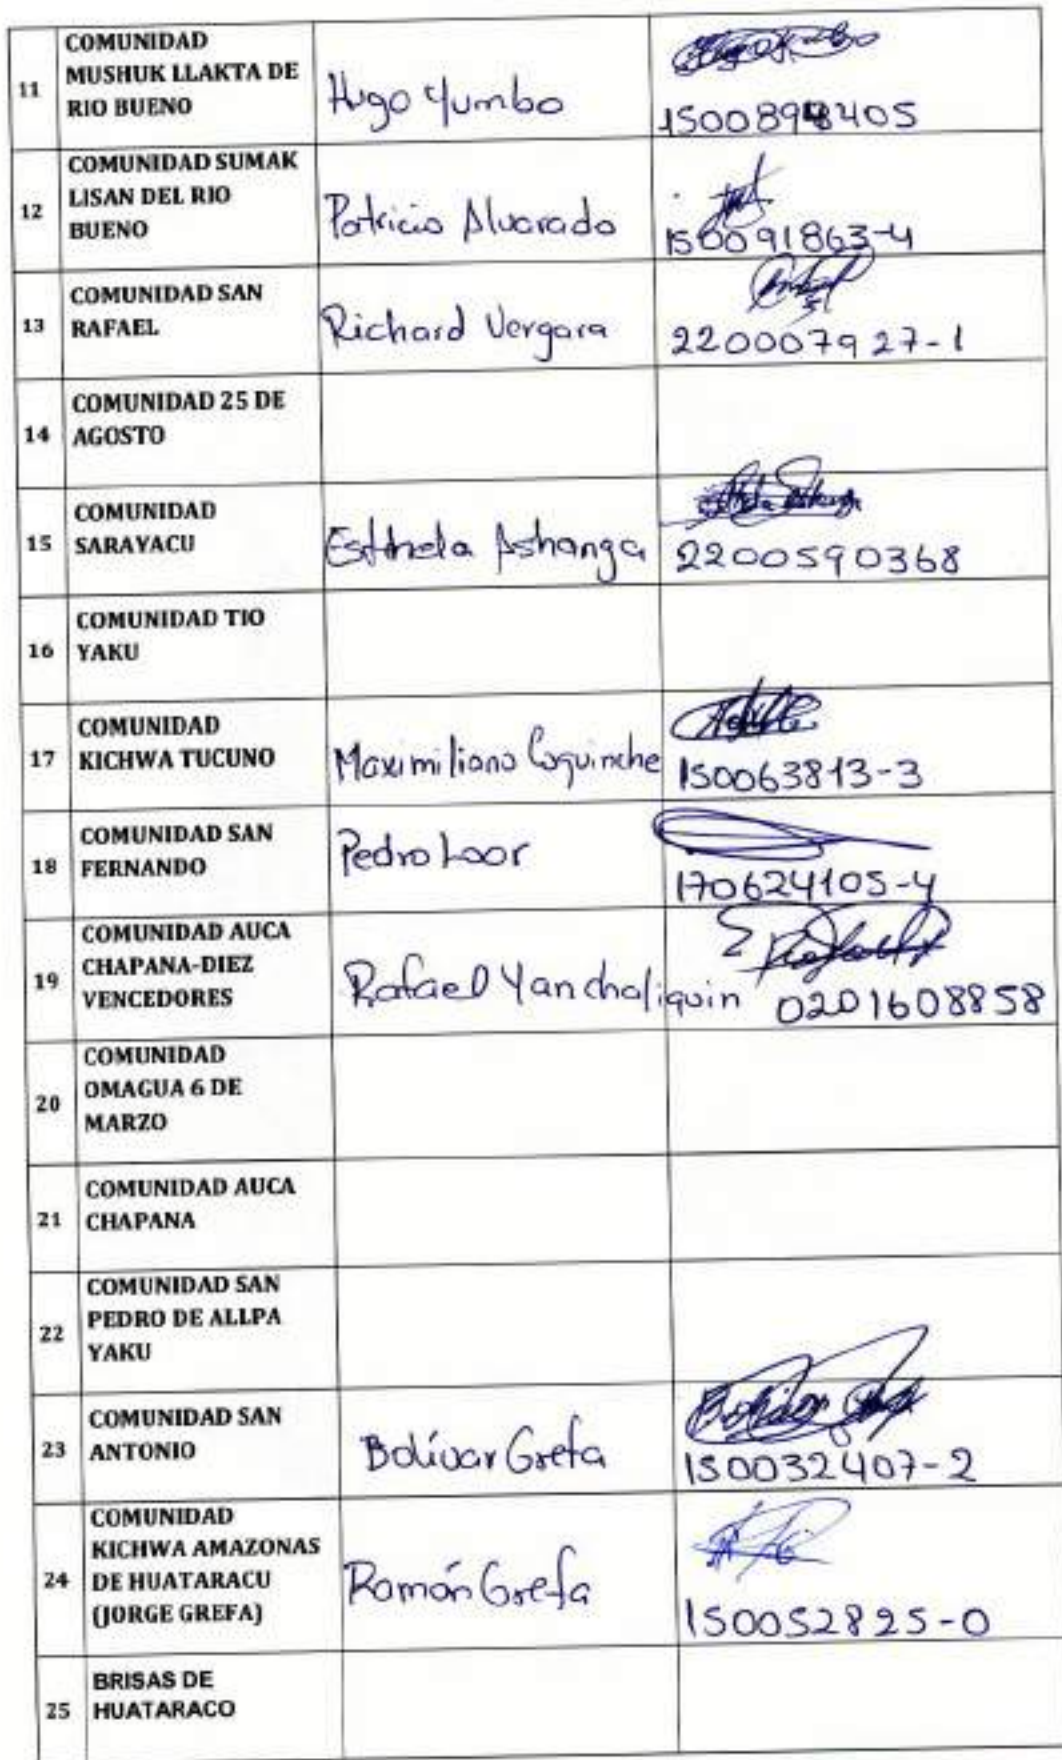 COMUNIDAD
MUSHUK LLAKTA DE
11
RIO BUENO
Hugo Yumbo
COMUNIDAD SUMAK
LISAN DEL RIO
12
BUENO
Patricio Alvarado
150091863-4
COMUNIDAD SAN
13
RAFAEL
Richard Vergara
220007927-1
COMUNIDAD 25 DE
14
AGOSTO
COMUNIDAD
15
SARAYACU
Ashanga
2200590368
COMUNIDAD TIO
16
YAKU
COMUNIDAD
17
KICHWA TUCUNO
Maximiliano Coquinche
150063813-3
COMUNIDAD SAN
18
FERNANDO
Pedro Loor
170624105-4
COMUNIDAD AUCA
CHAPANA-DIEZ
19
VENCEDORES
Rafael Yanchaliquin
0201608858
COMUNIDAD
OMAGUA 6 DE
20
MARZO
COMUNIDAD AUCA
21
CHAPANA
COMUNIDAD SAN
PEDRO DE ALLPA
22
YAKU
COMUNIDAD SAN
23
ANTONIO
Bolívar Grefa
150032407-2
COMUNIDAD
KICHWA AMAZONAS
24
DE HUATARACU
(JORGE GREFA)
Ramón Grefa
150052825-0
BRISAS DE
25
HUATARACO